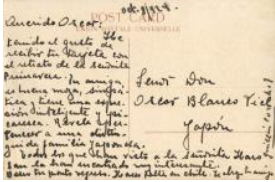 oct. 8/924.
POST CARD
UNION POSTALE UNIVERSELLE
Querido Oscar: The
tenido el gusto de
recibir tu tarjeta con
el retrato de la señorita
Primavera. Tu amiga,
es buena moza, simpá-
tica y tiene una expre-
sión inteligente y
a una distin-
guida familia japonesa.
Todos los que han visto a la señorita Haro
San la han encontrado muy interesante.
en Chile.
Señor Don
Oscar Blanco Viel
Japón